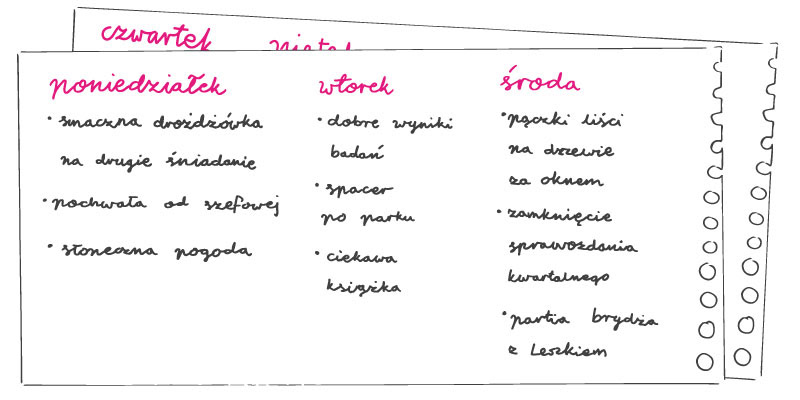 czwartek
poniedziałek
• smaczna drożdżówka
na drugie śniadanie
• pochwała od szefowej
• słoneczna pogoda
wtorek
• dobre wyniki
badań
• spacer
po parku
• ciekawa
książka
środa
• pączki liści
na drzewie
za oknem
• zamknięcie
sprawozdania
kwartalnego
• partia brydża
z Leszkiem